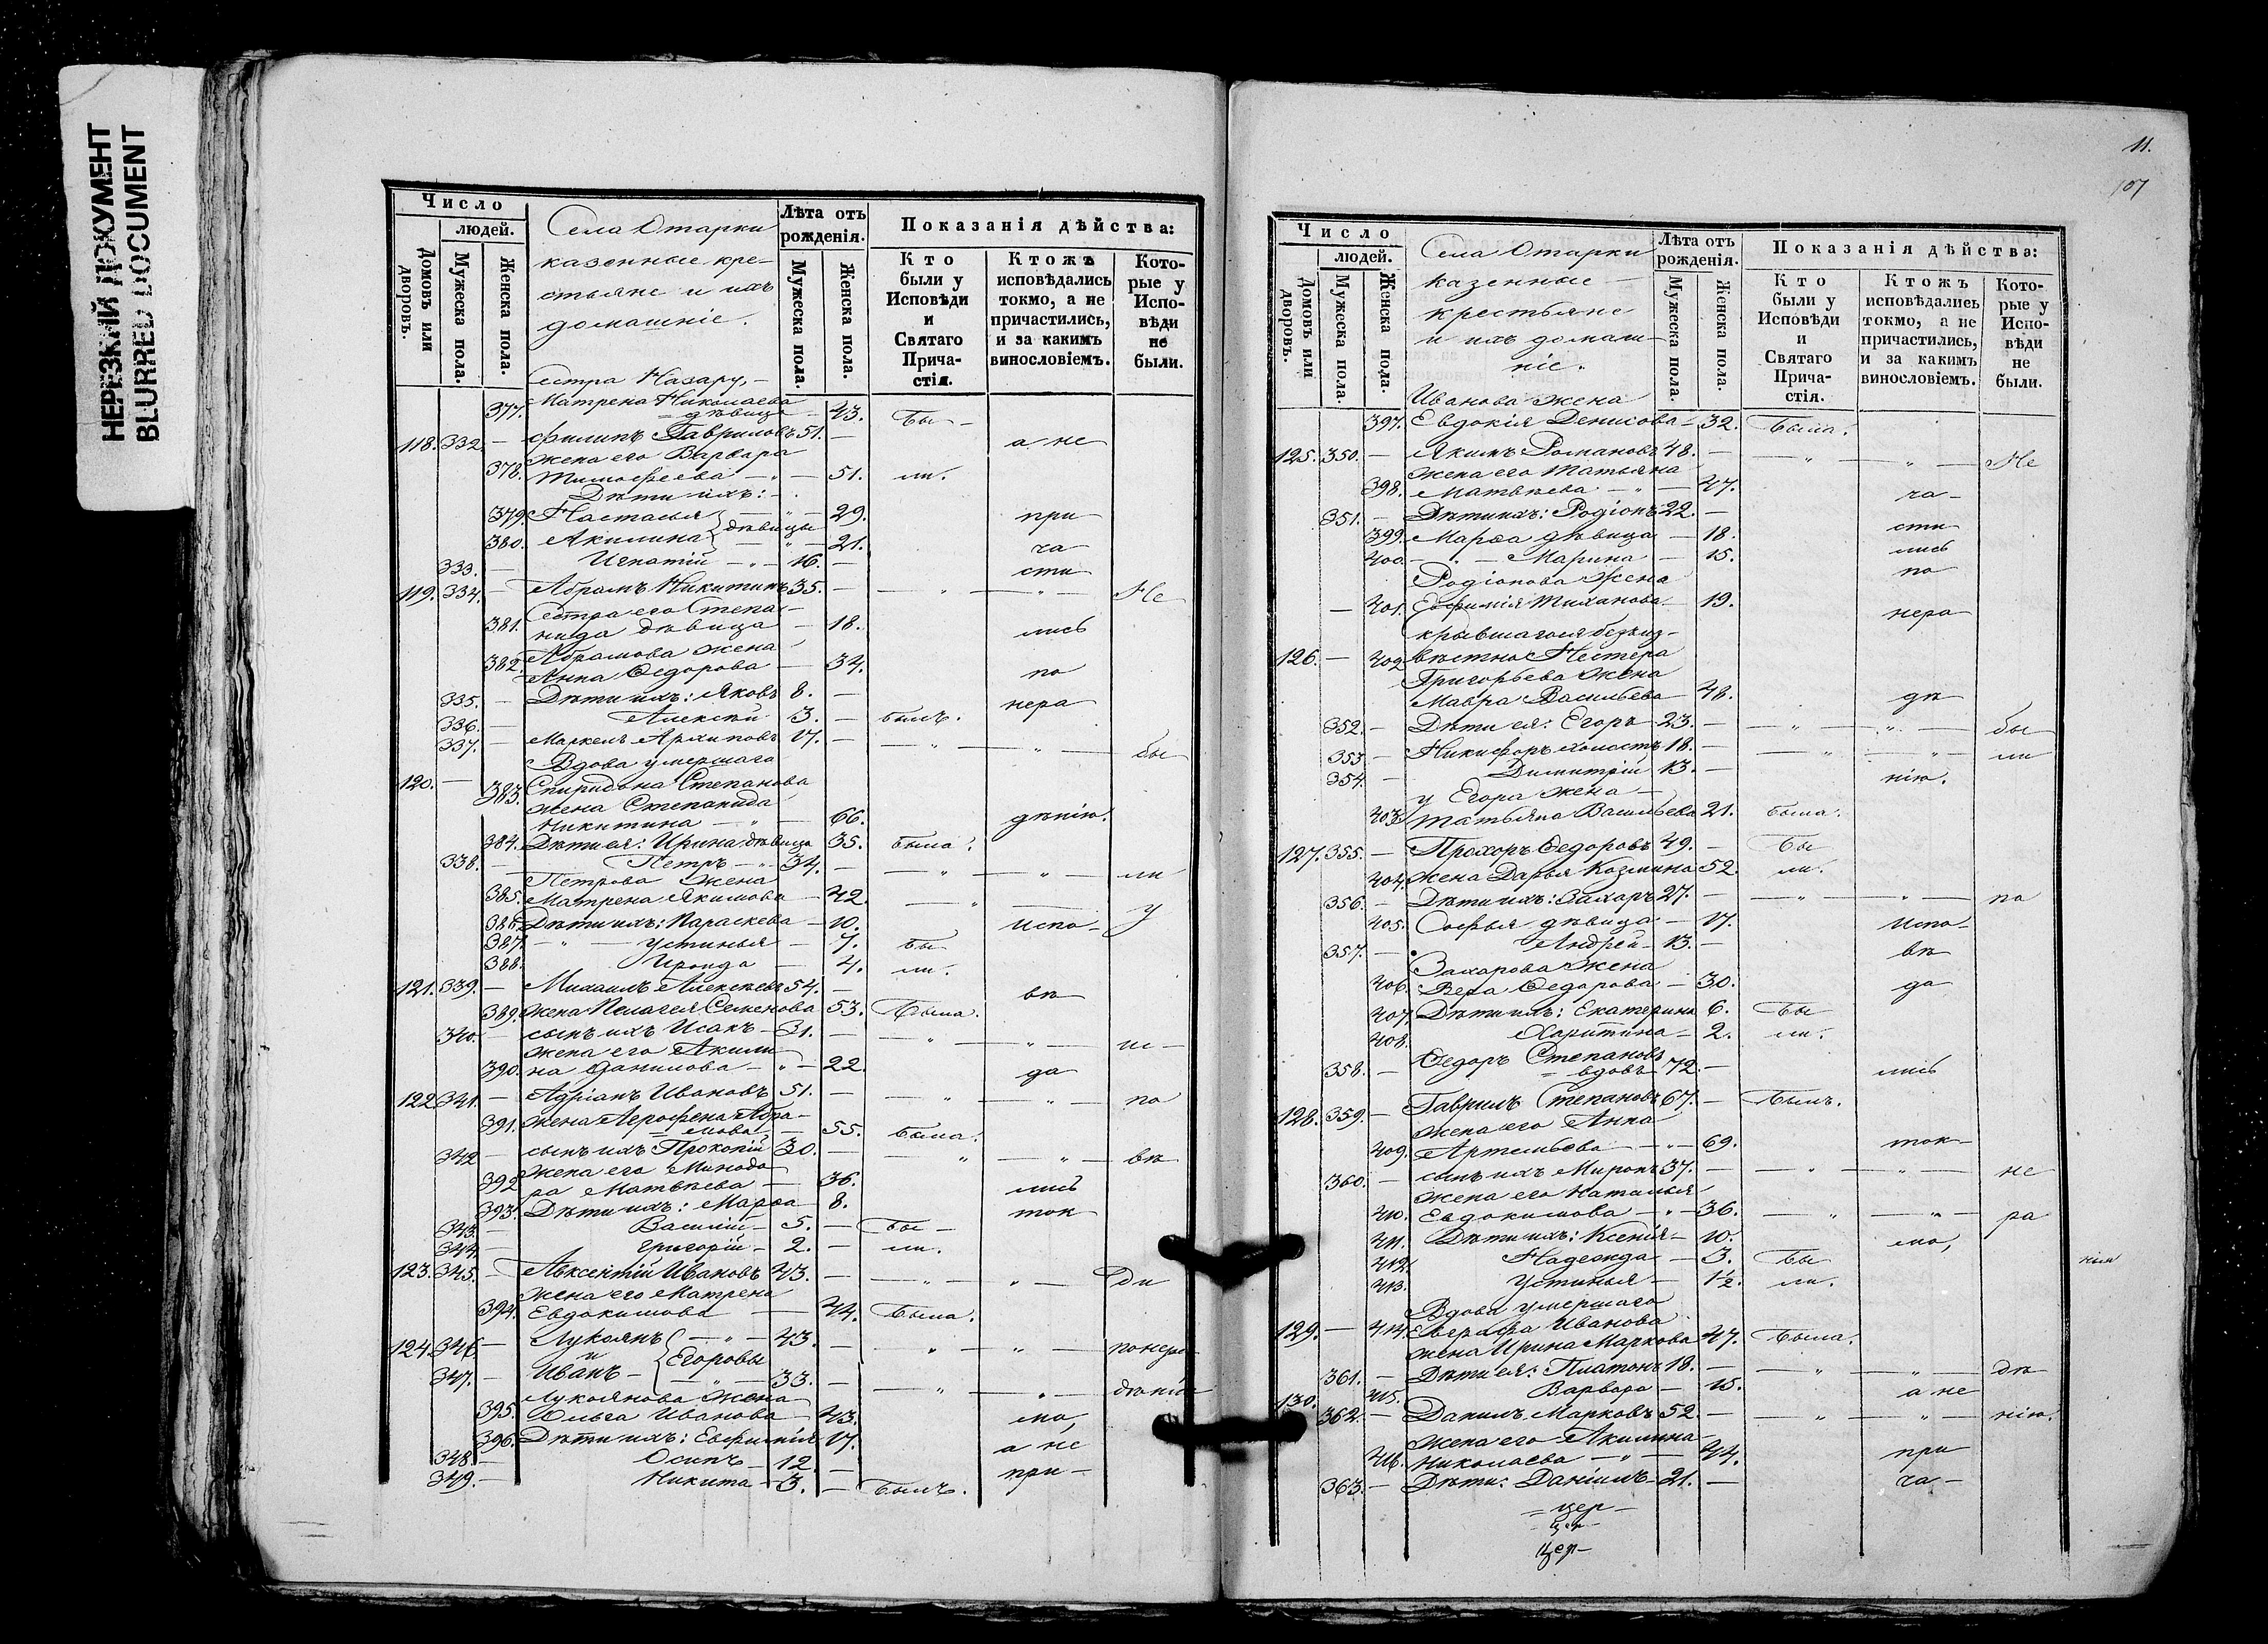 НЕРЕЗКИЙ ДОКУМЕНТ
BLURRED DOCUMENT
Число
людей.
Домовъ или дворовъ.
Мужеска пола.
Женска пола.
Села Отарки
казенные кре-
стьяне и ихъ
домашніе.
Лѣта отъ рожденія.
Мужеска пола.
Женска пола.
Показанія дѣйства:
Кто были у Исповѣди и Святаго Прича-стія.
Ктожъ исповѣдались токмо, а не причастились, и за какимъ винословіемъ.
Кото-рые у Испо-вѣди не были.
сестра Назару,
377. Матрена Николаева
= дѣвица — 43. бы-
118. 332. — Филипъ Гавриловъ 51. — а не
жена его Варвара
378. Тимофеева — " — 51. ли.
Дѣти ихъ: —
379. Настасья — " — 29. при
дѣвицы
380. Акилина — " — 21. ча
333. — Игнатій — " — 16. — сти
119. 334. — Абрамъ Никитинъ 35. — " — " — Не
сестра его Степа-
381. нида дѣвица — 18. лись
Абрамова жена
382. Анна Ѳедорова — 34. по
335. — Дѣти ихъ: Яковъ 8. — нера
336. — Алексѣй 3. — былъ.
337. — Маркелъ Архиповъ 17. — " — " — бы
Вдова умершаго
120. — 383. Спиридона Степанова
жена Степанида
Никитина — " — 66. дѣнію.
384. Дѣти ея: Ирина дѣвица 35. была.
338. — Петръ — " 34. — " — " — ли
Петрова жена
385. Матрена Якимова — 42. — " — у
386. Дѣти ихъ: Параскева — 10. испо-
387. — " — Устинья — 7. бы
388. Ираида — 4. ли.
121. 339. — Михаилъ Алексѣевъ 54. — вѣ
389. жена Пелагея Семенова 53. Была.
340. — сынъ ихъ Исакъ — 31. — " — " — ис-
жена его Акили-
390. на Данилова — " — 22. да
122. 341. — Адріанъ Ивановъ 51. — " — " — по
391. жена Агрофена Абра-
= мова — 55. была.
342. — сынъ ихъ Прокопій 30. — " — " — вѣ
жена его Минодо-
392. ра Матвѣева — 36. лись
393. Дѣти ихъ: Марѳа — 8. ток
343. — Василій — 5. — Бы —
344. — Григорій — 2. — ли.
123. 345. — Авксентій Ивановъ 43. — " — " — ди
жена его Матрена
394. Евдокимова — 44. Была.
124. 346. — Лукоянъ — " — 43. — " — " — понера
и Егоровы
347. — Иванъ — " — 33. — " — " — дѣнію
Лукоянова жена
395. Ольга Иванова 43. мо,
396. Дѣти ихъ: Евфимія 17. а не
348. — Осипъ — 12. — при-
349. — Никита — 3. — Былъ.
11.
107
Число
людей.
Домовъ или дворовъ.
Мужеска пола.
Женска пола.
Села Отарки
казенные —
крестьяне
и ихъ домаш-
ніе.
Лѣта отъ рожденія.
Мужеска пола.
Женска пола.
Показанія дѣйства:
Кто были у Исповѣди и Святаго Прича-стія.
Ктожъ исповѣдались токмо, а не причастились, и за какимъ винословіемъ.
Кото-рые у Испо-вѣди не были.
Иванова жена
397. Евдокія Денисова — 32. Была.
125. 350. — Якимъ Романовъ 48. — " — " — Не
жена его Татьяна
398. Матвѣева — " — 47. ча-
351. — Дѣти ихъ: Родіонъ 22. —
399. Марѳа дѣвица — 18. сти
400. — " — Марина — 15. лись
Родіонова жена по
— 401. Евфимія 19. нера
скрывшагося безъиз-
126. — 402. вѣстно Нестера
Григорьева жена
Мавра Васильева — 48. дѣ
352. — Дѣти ея: Егоръ — 23. — " — " — бы
353. — Никифоръ холостъ 18. — " — " — ли
354. — Димитрій 13. — нію.
у Егора жена —
403. Татьяна Васильева 21. была.
127. 355. — Прохоръ Ѳедоровъ 49. — Бы
404. жена Дарья Козмина 52. ли.
356. — Дѣти ихъ: Захаръ 27. — " — " — по
405. Софья дѣвица — 17. испо-
357. — Андрей — 13. — вѣ
Захарова жена
406. Вера Ѳедорова — 30. да
407. Дѣти ихъ: Екатерина 6. Бы
408. Харитина — 2. ли.
358. — Ѳедоръ Степановъ
= вдовъ — 72. — лись
128. 359. — Гаврилъ Степановъ 67. — Былъ.
жена его Анна
409. Артемьева — " — 69. ток-
360. — сынъ ихъ Миронъ 37. — " — " — не
жена его Наталья
410. Евдокимова — " — 36. — " — " — ра
411. Дѣти ихъ: Ксенія — 10. мо,
412. Надежда — 3. Бы
413. Устинья — 1½. ли.
Вдова умершаго
129. — 414. Иванова
жена Ирина Маркова 47. Была.
361. — Дѣти ея: Платонъ 18. — " — " — дѣ
415. Варвара — 15. а не
130. 362. — Данилъ Марковъ 52. — " — " — нію.
жена его Акилина
416. Николаева — " — 44. при
363. — Дѣти: Даніилъ — 21. — ча-
= цер —
- цер -
Цер-